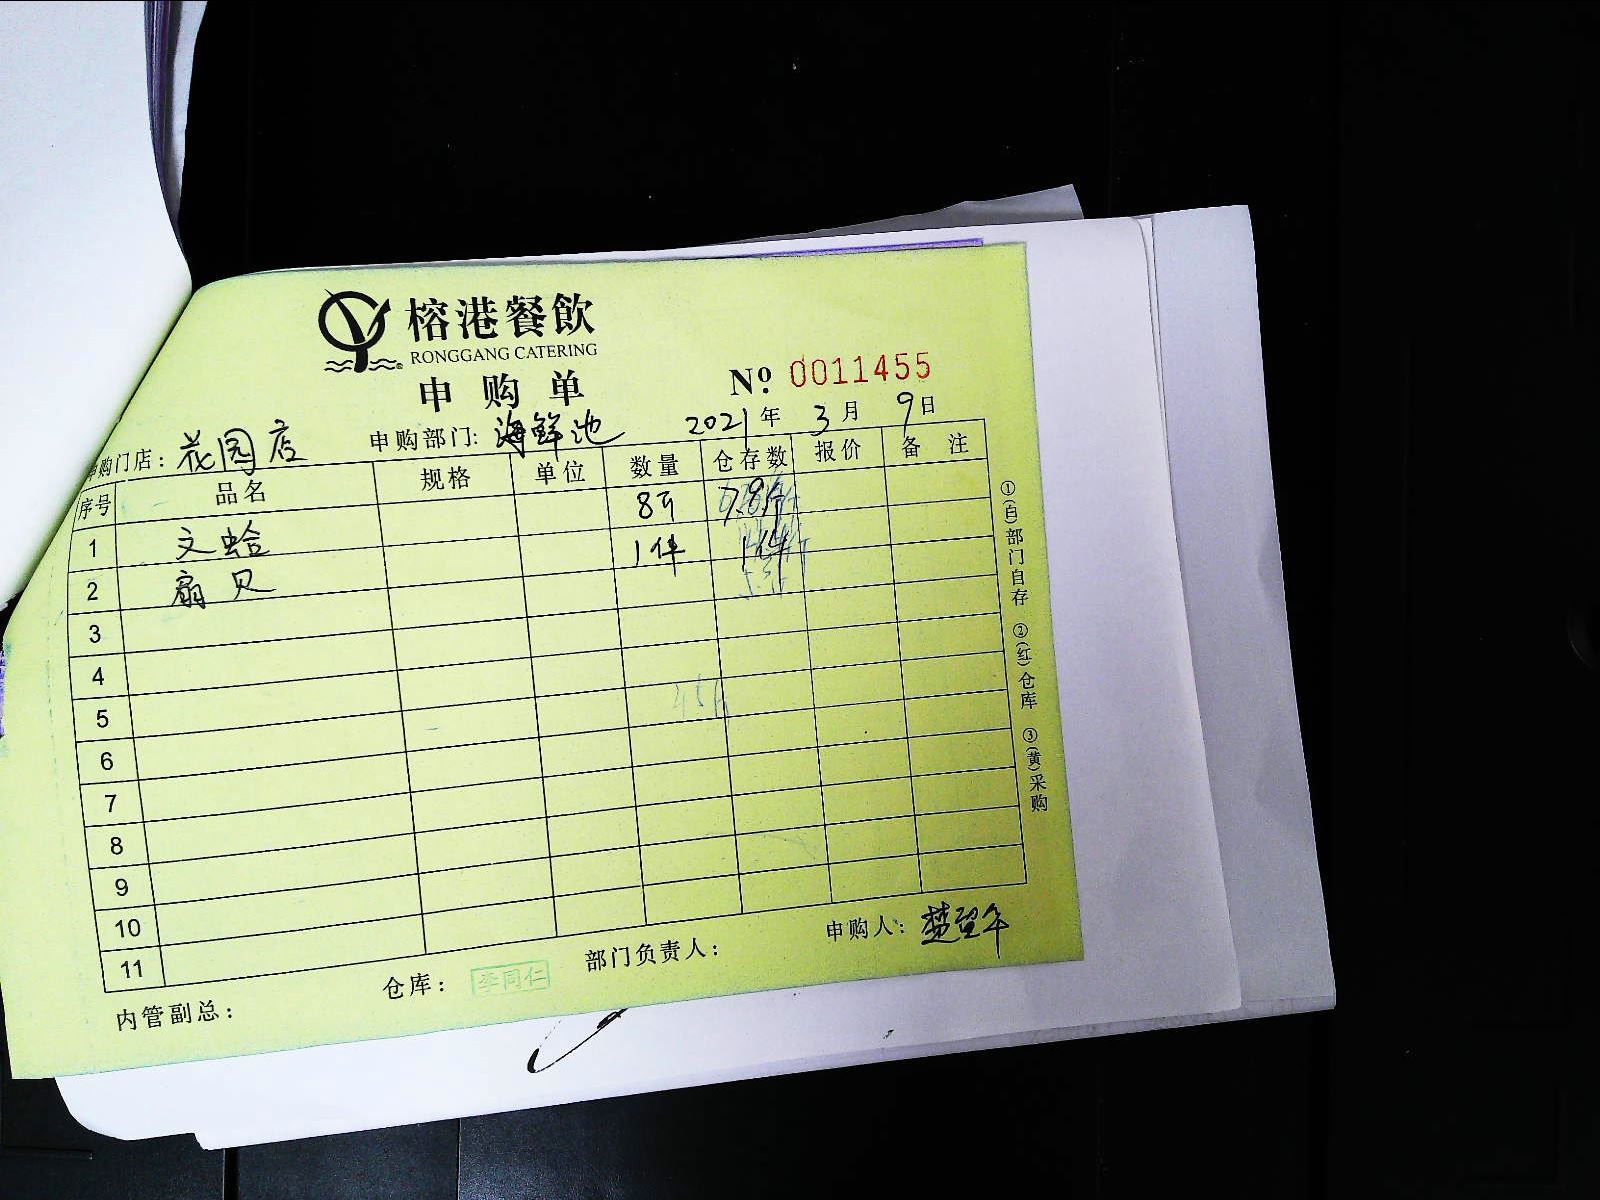 榕港餐飲
RONGGANG CATERING
申购单
Nº 0011455
申购门店：花园店 申购部门：海鲜池 2021年3月9日
序号 品名 规格 单位 数量 仓存数 报价 备注
1 文蛤 8斤
2 扇贝 1件 1件
3
4
5
6
7
8
9
10
11
①(白)部门自存 ②(红)仓库 ③(黄)采购
内管副总： 仓库：李同仁 部门负责人： 申购人：楚望年